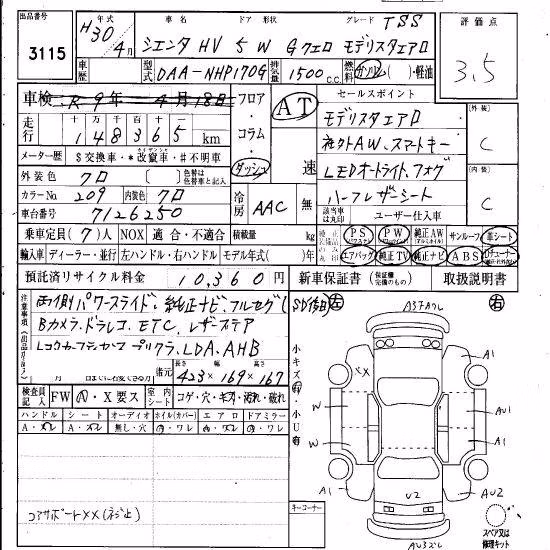 出品番号
3115
年式
H30年
4月
車名
シエンタ HV
ドア 形状
5 W
グレード TSS
Gクエロ モデリスタエアロ
評価点
3.5
車歴
型式 DAA-NHP170G
排気量 1500 c.c.
燃料 ガソリン( )・軽油
車検 R 9年 4月 18日
フロア・コラム・ダッシュ
AT
速
セールスポイント
走行 十 万 千 百 十 一
148365 km
モデリスタエアロ
社外AW、スマートキー
LEDオートライト、フォグ
ハーフレザーシート
外装 C
内装 C
メーター歴 $交換車・*改竄車・#不明車
外装色 クロ ( ) 色替は色替車と記入
カラーNo 209 内装色 クロ
冷房 AAC 無
車台番号 7126250
該当車は丸印 ユーザー仕入車
乗車定員(7)人 NOX 適合・不適合 積載量 kg
PS PW 純正AW サンルーフ 革シート
輸入車 ディーラー・並行 左ハンドル・右ハンドル モデル年式( )年
エアバッグ 純正TV 純正ナビ ABS Dチューナー
預託済リサイクル料金 10,360円
新車保証書 (保証継続完備のもの) 取扱説明書
注意事項(出品店申告)
両側パワースライド、純正ナビ、フルセグ(
Bカメラ、ドラレコ、ETC、レザーステア
プリクラ、LDA、AHB
SD後日
右 左
月 日までに名変できる 月
諸元 長さ 423×幅 169×高さ 167
検査員記入 FW A・X要ス 室内シート コゲ・穴・キズ・汚れ・破れ
ハンドル シート オーディオ ホイル(カバー) エアロ ドアミラー
A・スレ A・スレ 無し・穴 A・ワレ A・ワレ A・ワレ
コアサポートXX(ネジ止)
小キズ有・小U有
キーコーナー
XX
A1
W
AU1
W
A1
A1
U2
AU2
スペア又は修理キット